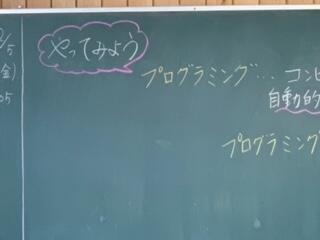 /5
(金)
05
やってみよう
プログラミング… コンピ
自動的
プログラミング